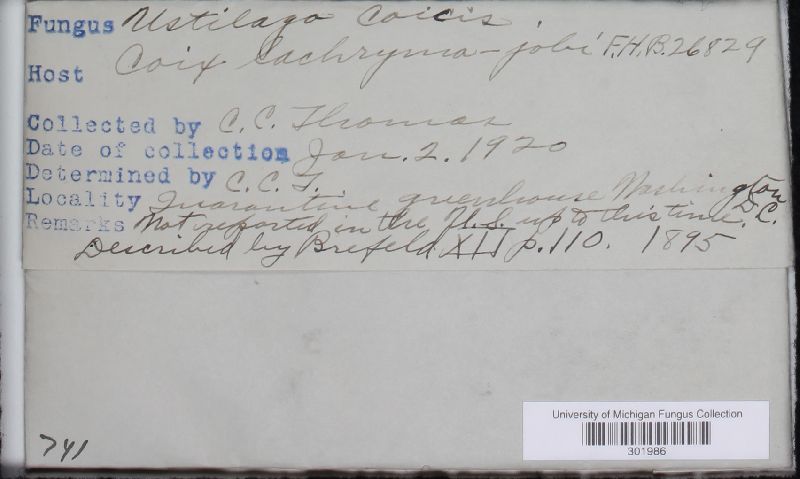 Fungus Ustilago Coicis.
Host Coix lachryma-jobi F.H.B. 26829
Collected by C. C. Thomas
Date of collection Jan. 2. 1920
Determined by C. C. T.
Locality Quarantine greenhouse Washington D.C.
Remarks Not reported in the U.S. up to this time.
Described by Brefeld XII p. 110. 1895
741
University of Michigan Fungus Collection
301986